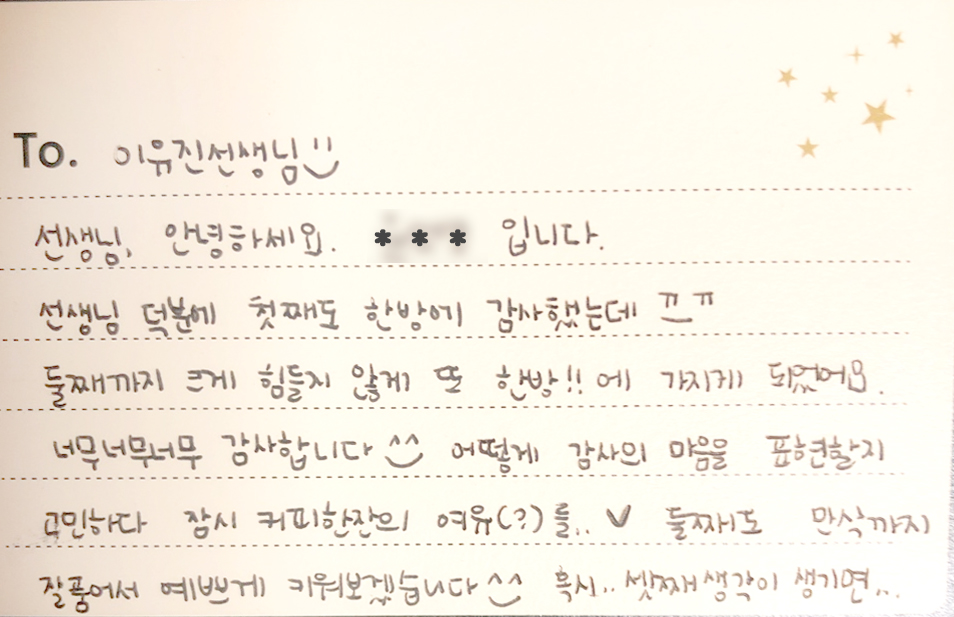 To. 이유진선생님 :)
선생님, 안녕하세요. *** 입니다.
선생님 덕분에 첫째도 한방에 감사했는데 ㅠㅠ
둘째까지 크게 힘들지 않게 또 한방!! 에 가지게 되었어요.
너무너무너무 감사합니다 ^^ 어떻게 감사의 마음을 표현할지
고민하다 잠시 커피한잔의 여유(?)를.. ♥ 둘째도 만삭까지
잘품어서 예쁘게 키워보겠습니다 ^^ 혹시.. 셋째생각이 생기면..